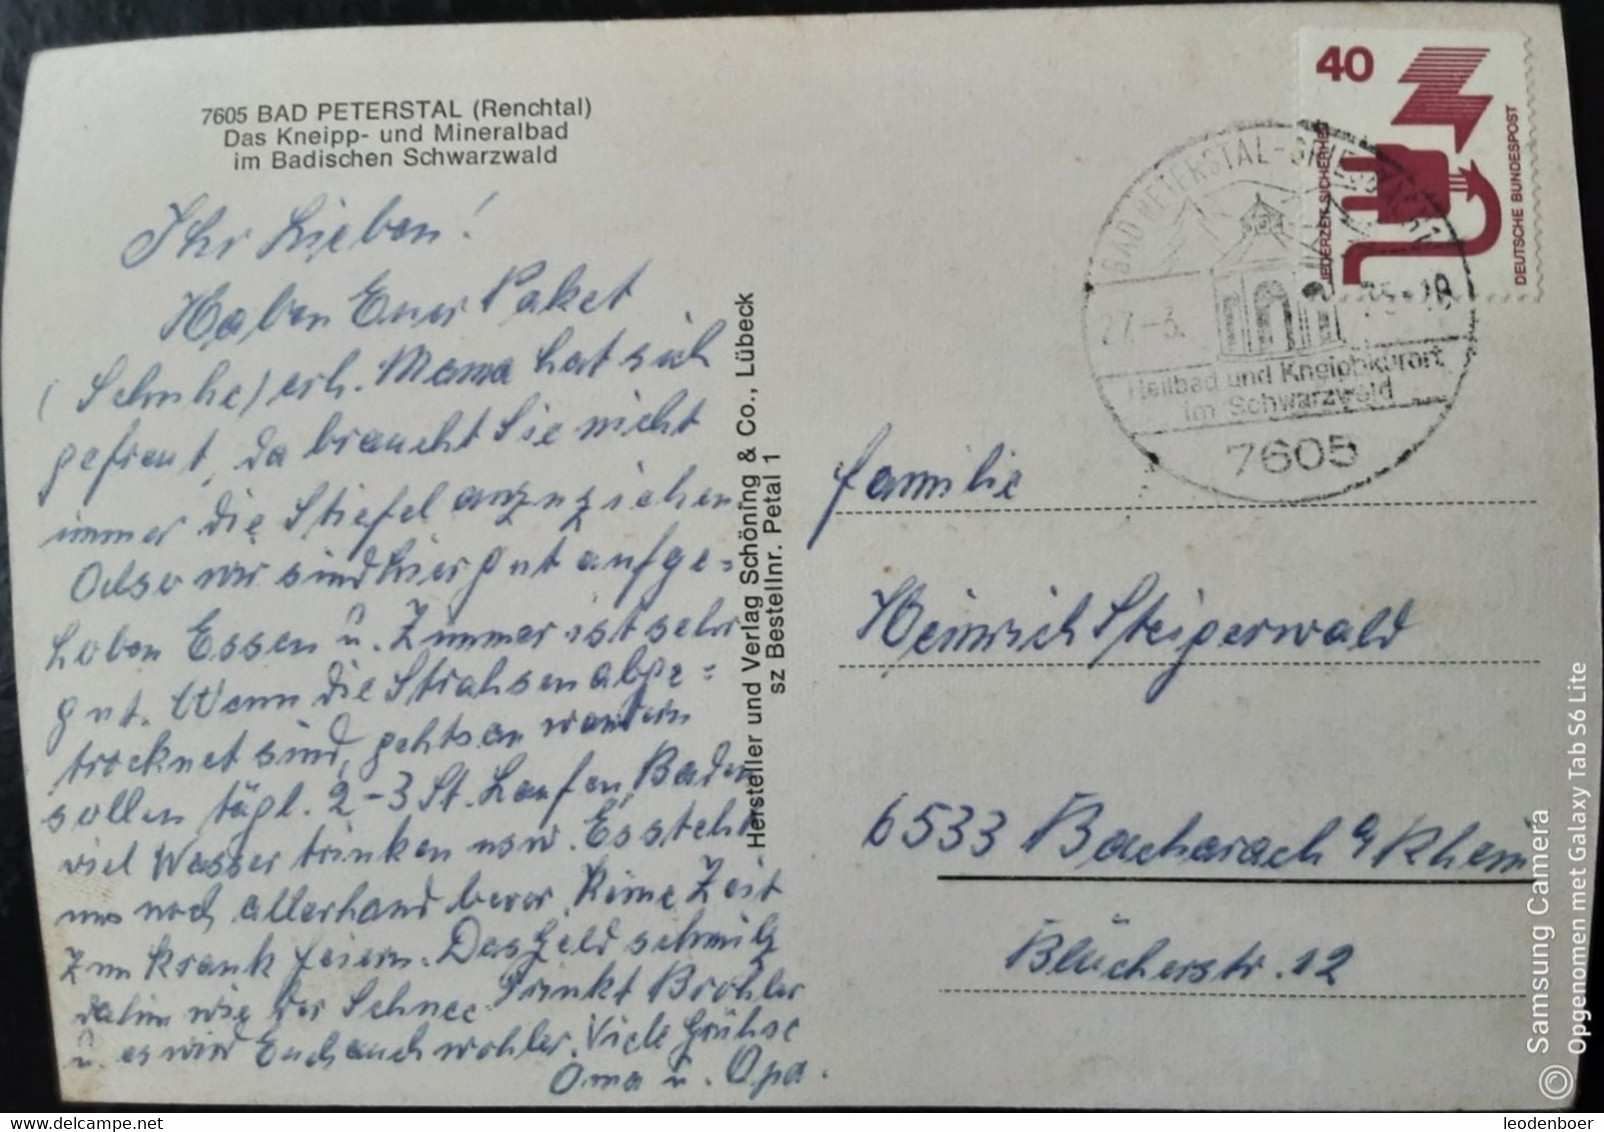 7605 BAD PETERSTAL (Renchtal)
Das Kneipp- und Mineralbad
im Badischen Schwarzwald
Ihr Lieben!
Haben Euer Paket
(Schuhe) erh. Mama hat sich
gefreut, da braucht Sie nicht
immer die Stiefel anzuziehen
Also wir sind hier gut aufge=
hoben Essen u. Zimmer ist sehr
gut. Wenn die Strahsen abge=
trocknet sind, gehts an wandern
sollen tägl. 2-3 St. Laufen, Baden
viel Wasser trinken usw. Es steht
uns noch allerhand bevor. Keine Zeit
zum krank feiern. Das Geld schmilz
dahin wie der Schnee. Trinkt Brohler
u. es wird Euch auch wohler. Viele Grühse
Oma u. Opa.
Hersteller und Verlag Schöning & Co., Lübeck
sz Bestellnr. Petal 1
40
JEDERZEIT SICHERHEIT
DEUTSCHE BUNDESPOST
BAD PETERSTAL-GRIESBACH 1
27.-3. 75-18
Heilbad und Kneippkurort
im Schwarzwald
7605
Familie
Heinrich Steigerwald
6533 Bacharach a/Rhein
Blücherstr. 12
Samsung Camera
Opgenomen met Galaxy Tab S6 Lite
leodenboer